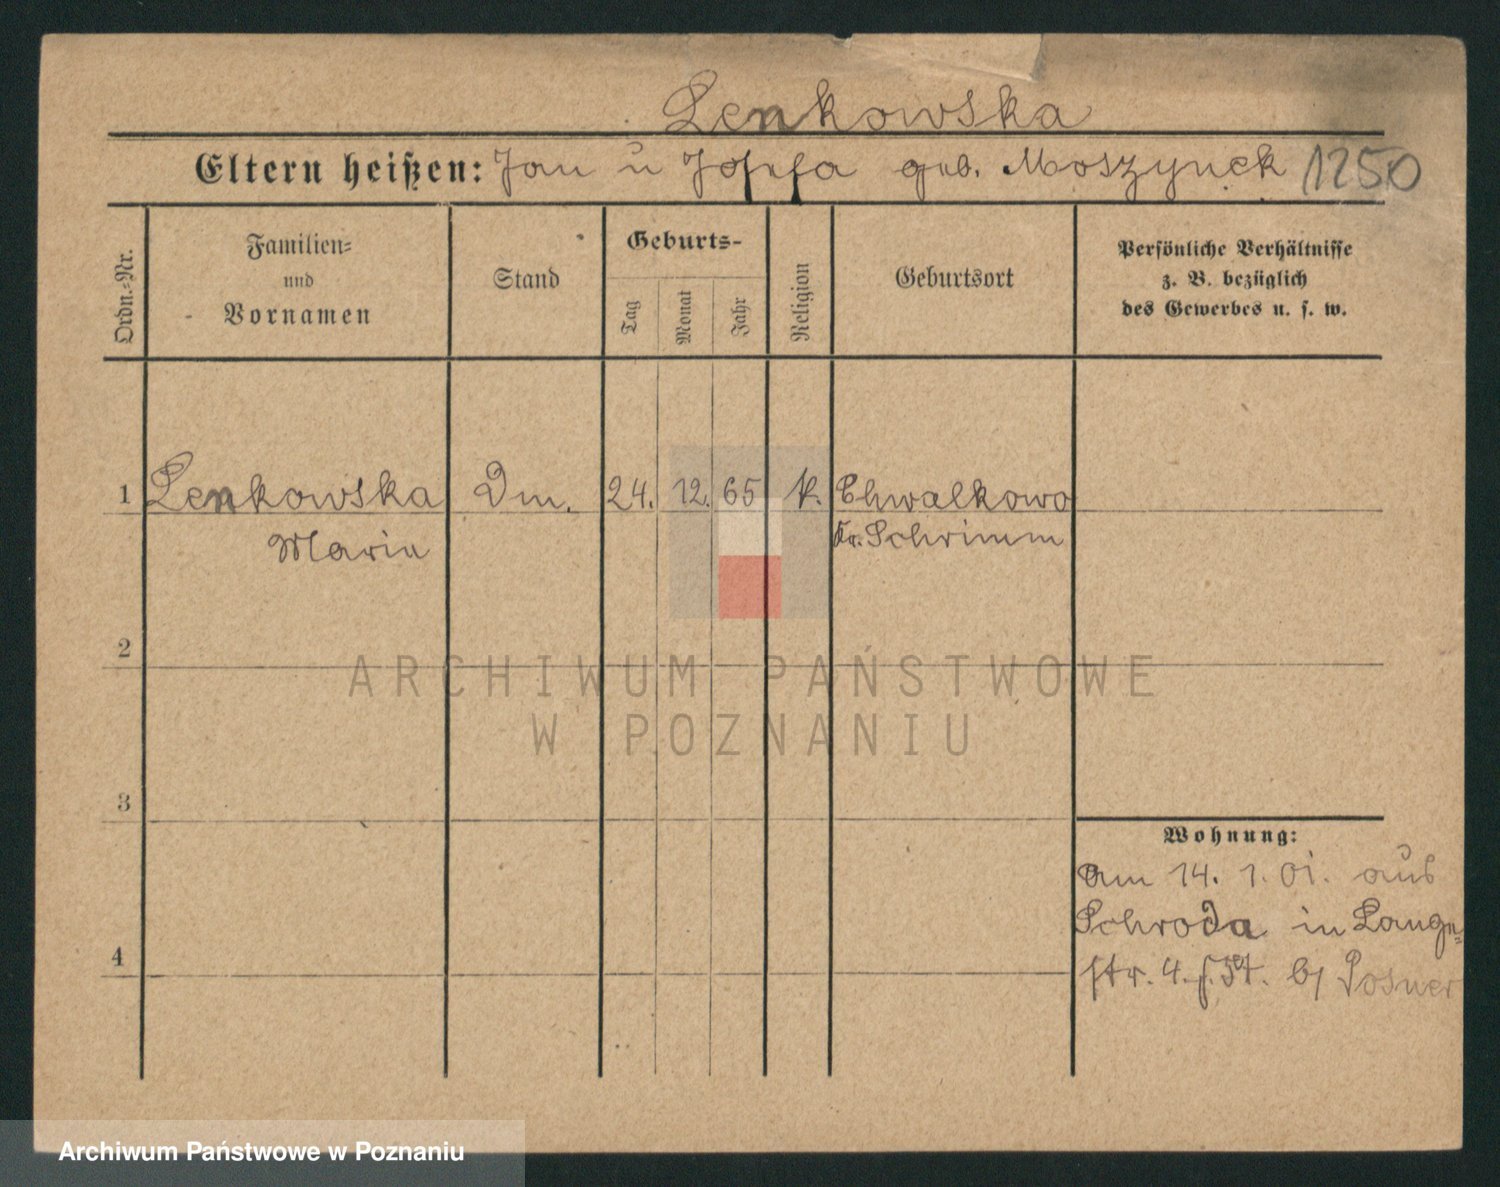 Lenkowska
Eltern heißen: Jan u Josefa geb. Moszynck 1250
Ordn.-Nr.
Familien-
und
Vornamen
Stand
Geburts-
Tag
Monat
Jahr
Religion
Geburtsort
Persönliche Verhältnisse
z. B. bezüglich
des Gewerbes u. s. w.
1 Lenkowska Dm. 24. 12. 65 k. Chwalkowo
Maria Kr. Schrimm
2
ARCHIWUM PAŃSTWOWE
W POZNANIU
3
Wohnung:
am 14. 1. 01. aus
Schroda in Lange-
4
str. 4. b/ Posner
Archiwum Państwowe w Poznaniu